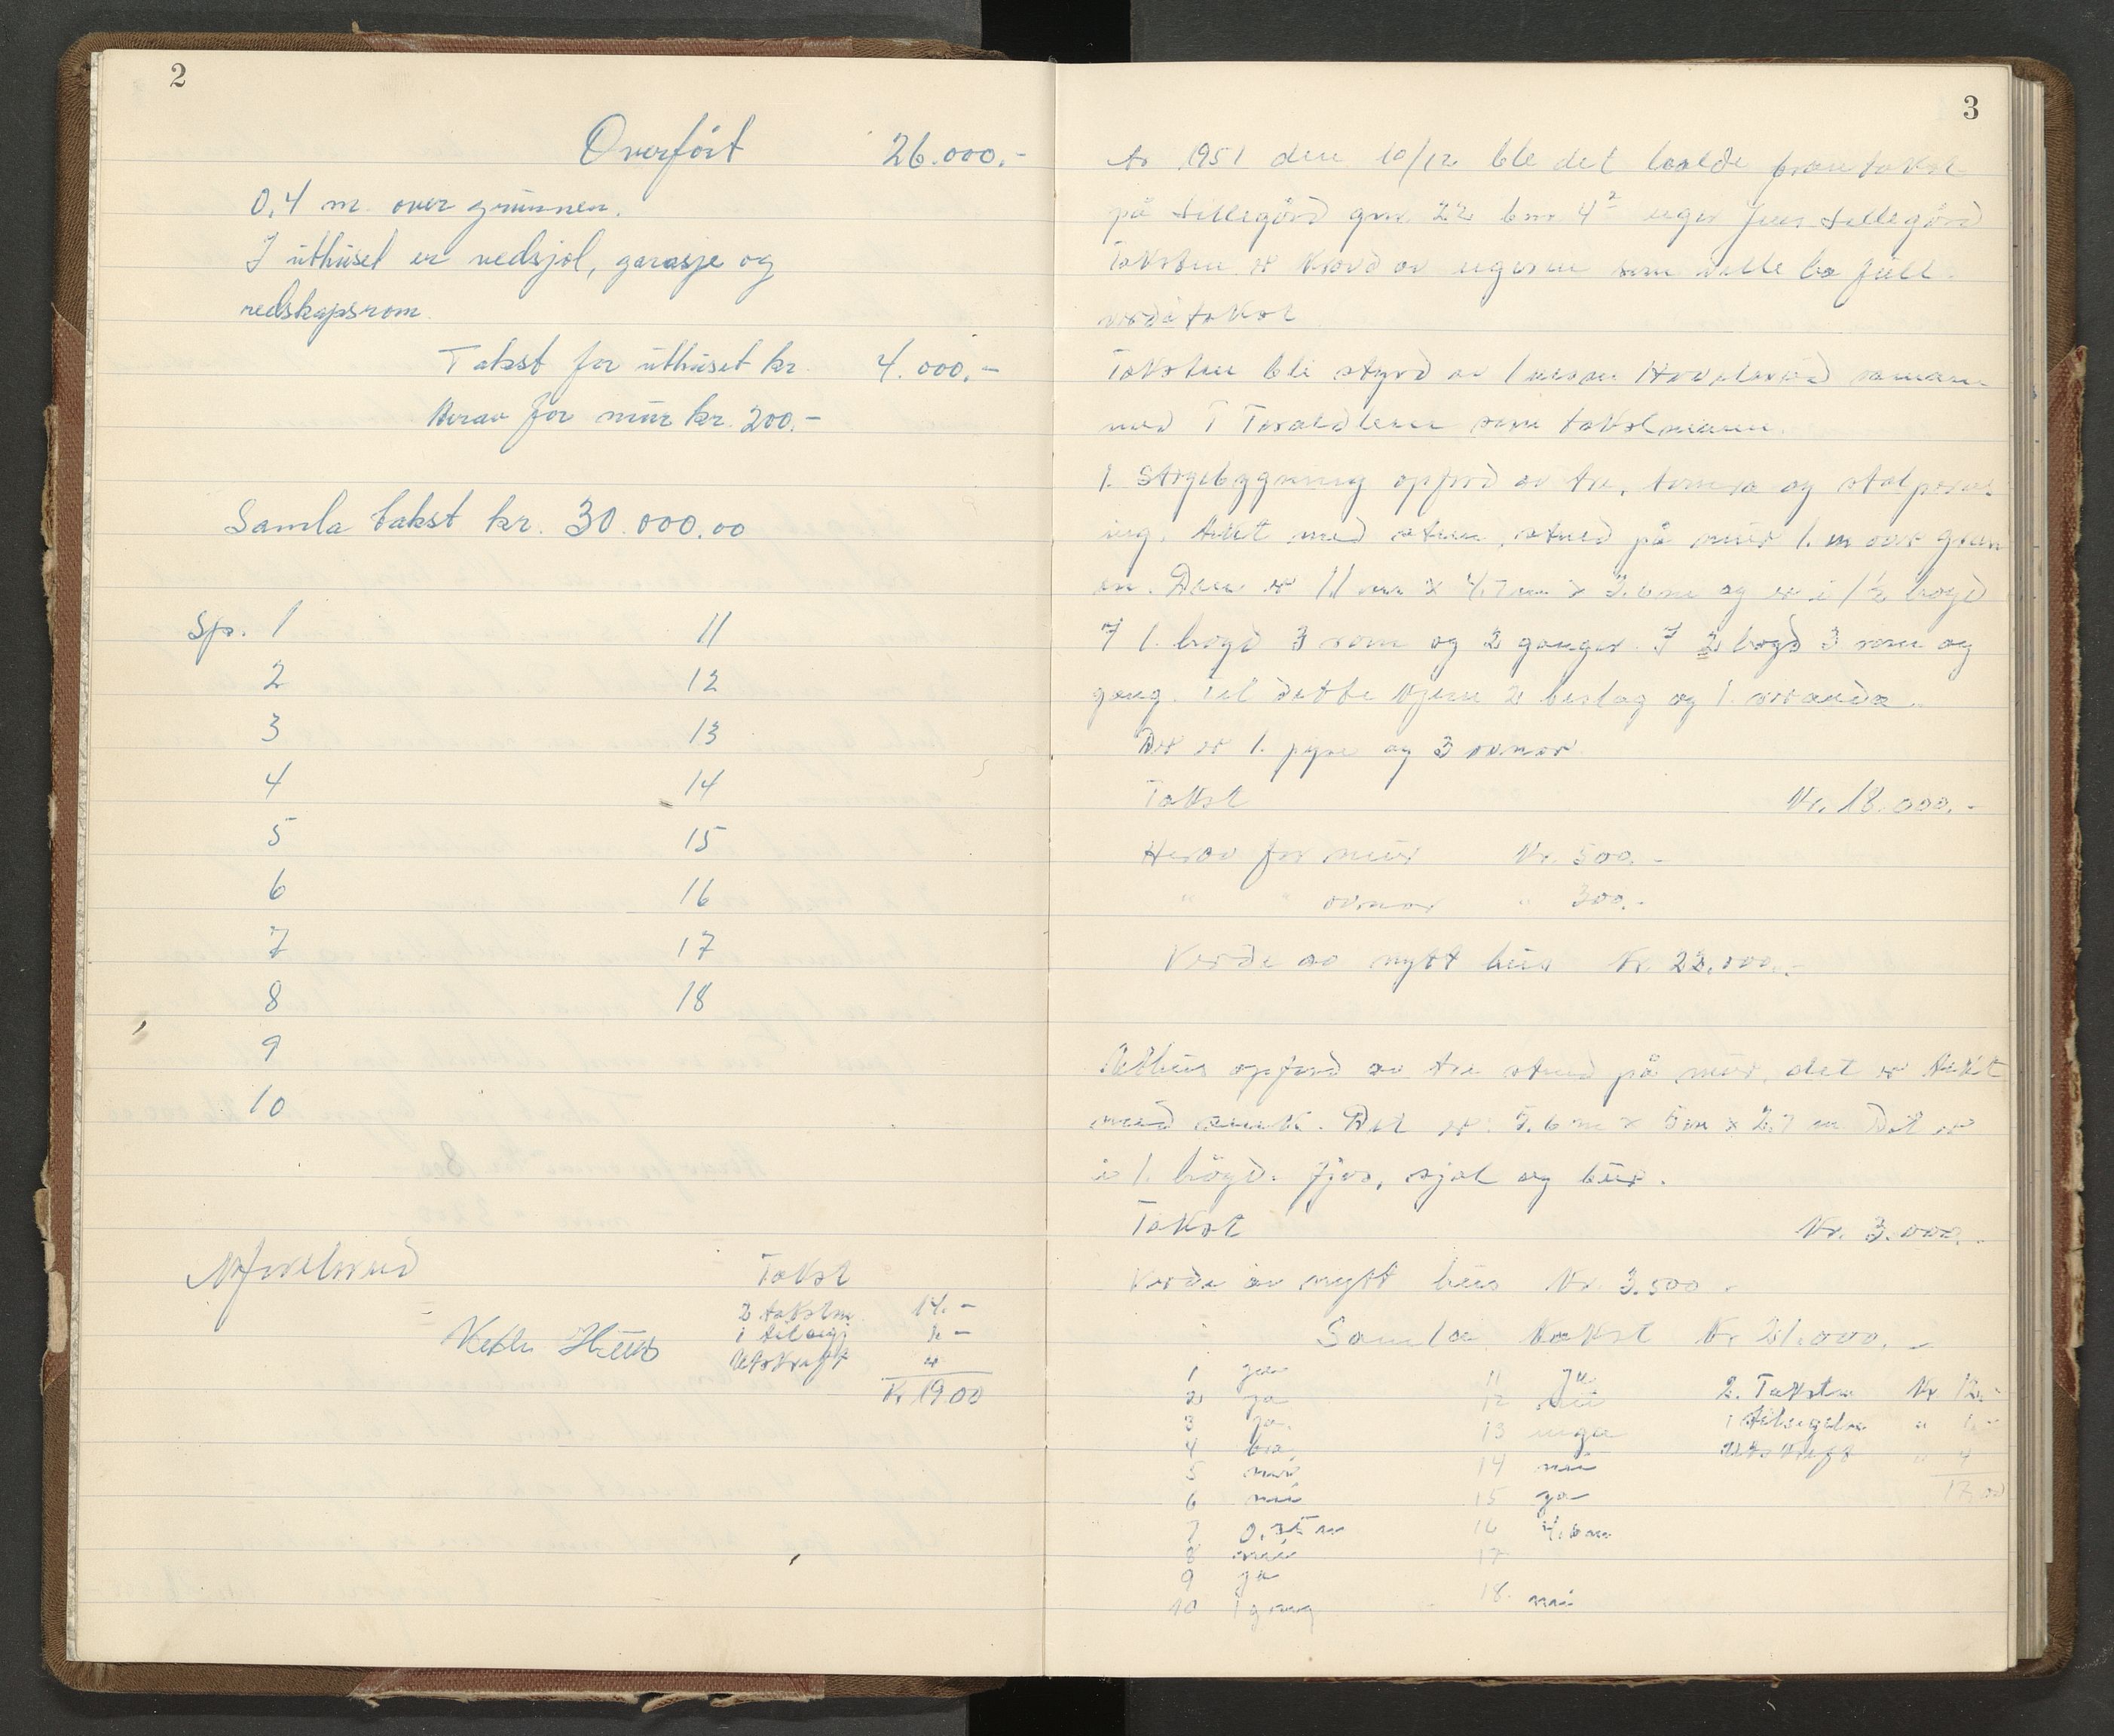 2
Overført 26.000.-
0,4 m over grunnen.
I uthuset er vedsjol, garasje og
redskapsrom.
Takst for uthuset kr. 4.000.-
Herav for mur kr. 200.-
Samla takst kr. 30.000.00
Sps. 1 11
2 12
3 13
4 14
5 15
6 16
7 17
8 18
9
10
Takst
2 takstm. 14.-
1 tilsigj 1.-
Utskrift 4
Kr 19.00
3
År 1951 den 10/12 ble det halde branntakst
på Lillegård gnr 22 bnr 4² eiger Jens Lillegård
Taksten er kravd av eigeren som ville ha full
verditakst
Taksten ble styrd av
med T Taraldlien som takstmann.
1. Stogebygning opførd av tre, tømra og
ing. tekt med stein, stned på mur 1. m over grun
en. Den er 11 m x 4,7 m x 3.6 m og er i 1½ høgd
I 1. høgd 3 rom og 2 ganger. I 2 høgd 3 rom og
gang. Til dette kjem 2 beslag og 1. veranda.
Der er 1. pipe og 3 ovnar
Takst Kr. 18.000.-
Herav for mur Kr. 500.-
" " ovnar " 300.-
Verde av nytt hus Kr. 22.000.-
Uthus opførd av tre stned på mur, det er tekt
med Det er 5.6 m x 5 m x 2.7 m Det er
i 1. høgd. fjøs, sjol og bur.
Takst Kr. 3.000.-
Verde av nytt hus Kr. 3.500.-
Samla takst Kr 21.000.-
1 ja 11 ja
2 ja 12 nei 2. Takstm Kr. 12.-
3 ja 13 inga 1 tilsigelse " 1.-
4 bra 14 nei Utskrift " 4
5 nei 15 ja 17.00
6 nei 16
7 0.35 m 17
8 nei
9 ja 18. nei
10 1 gang